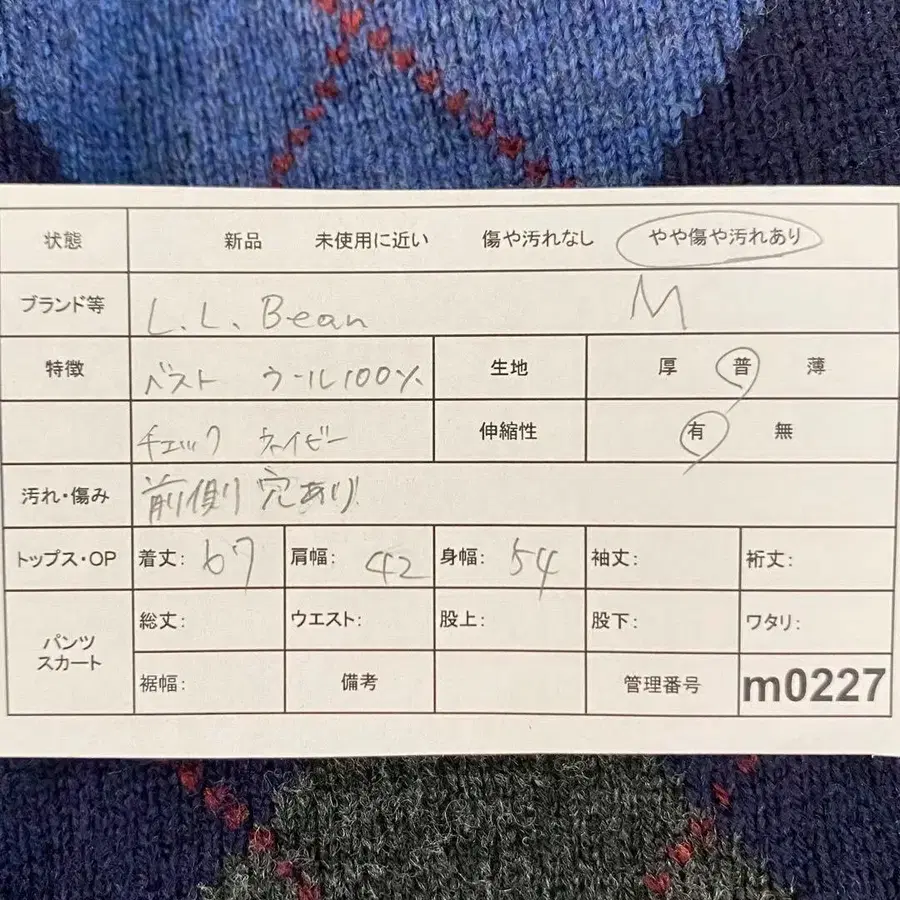 状態 新品 未使用に近い 傷や汚れなし やや傷や汚れあり
ブランド等 L.L.Bean M
特徴 ベスト ウール100% 生地 厚 普 薄
チェック ネイビー 伸縮性 有 無
汚れ・傷み 前側り 穴あり
トップス・OP 着丈: 67 肩幅: 42 身幅: 54 袖丈: 裄丈:
パンツ スカート 総丈: ウエスト: 股上: 股下: ワタリ:
裾幅: 備考 管理番号 m0227